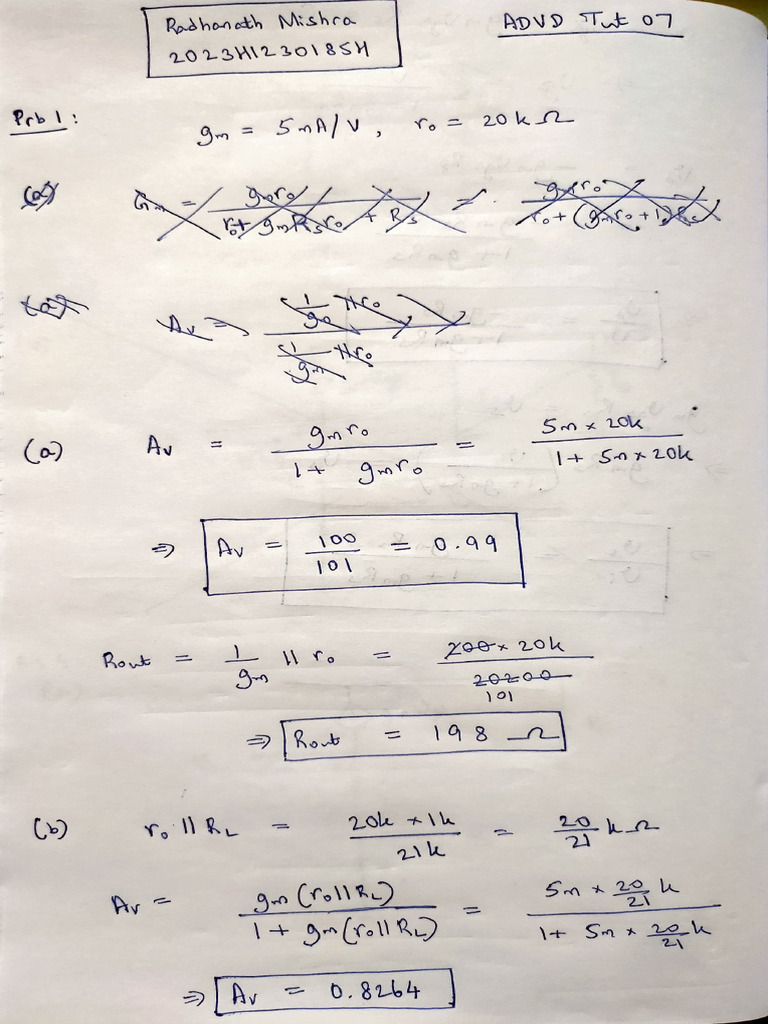 Radhanath Mishra
2023H1230185H
ADVD Tut 07
Prb 1 :
gm = 5mA/V , ro = 20k Ω
(a) Gm = gmro / ro + gmRsro + Rs = gmro / ro + (gmro + 1) Rs
(a) Av = 1/gm || ro / 1/gm || ro
(a) Av = gmro / 1 + gmro = 5m × 20k / 1 + 5m × 20k
⇒ Av = 100/101 = 0.99
Rout = 1/gm || ro = 200 × 20k / 20200 101
⇒ Rout = 198 Ω
(b) ro || RL = 20k × 1k / 21k = 20/21 k Ω
Av = gm (ro || RL) / 1 + gm (ro || RL) = 5m × 20/21 k / 1 + 5m × 20/21 k
⇒ Av = 0.8264